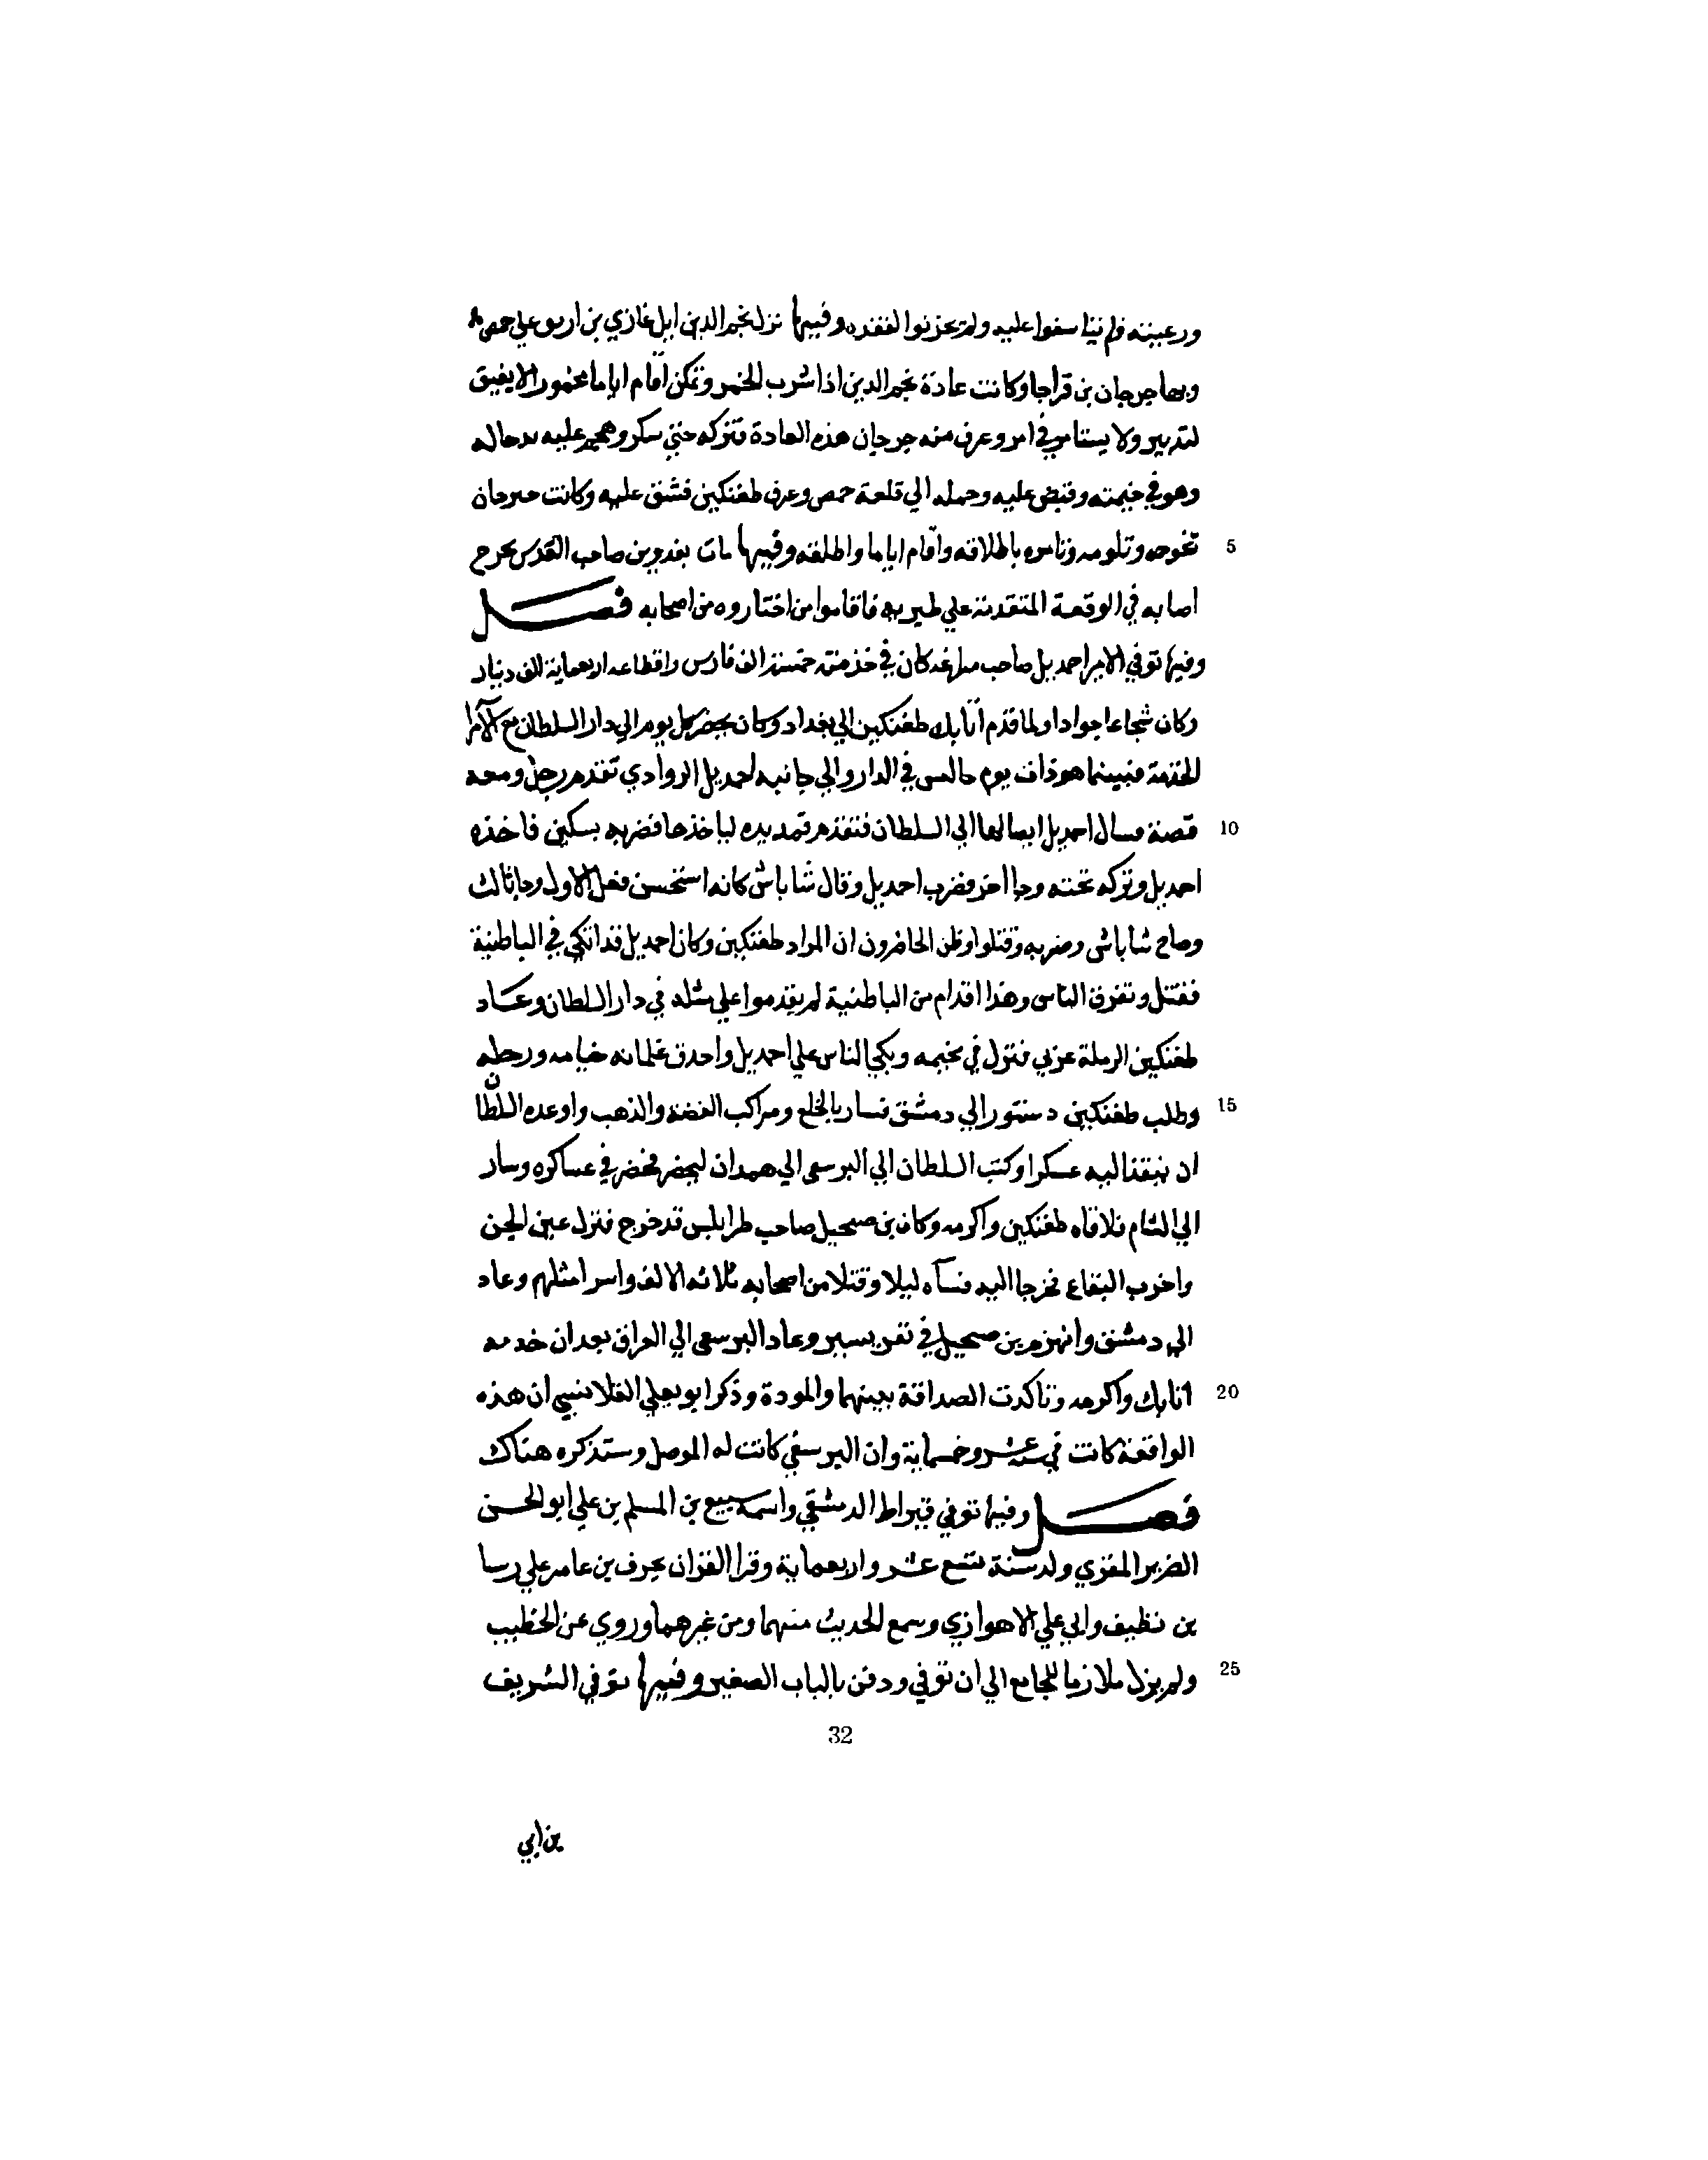 ورعيته ولم يتاسفوا عليه ولم يحزنوا لفقده وفيها نزل نجم الدين ايل غازي بن ارتق علي حمص
وبها جرجان بن قراجا وكانت عادة نجم الدين اذا شرب الخمر وتمكن اقام اياما مخمورا لا يفيق
لتدبير ولا يستامر في امر وعرف منه جرجان هذه العادة فتركه حتي سكر وهجم عليه برجاله
وهو في خيمته وقبض عليه وحمله الي قلعة حمص وعرف طغتكين فشق عليه وكانت جرجان
وتلومه وتامره باطلاقه واقام اياما واطلقه وفيها مات بغدوين صاحب القدس بجرح 5
اصابه في الوقعة المتقدمة علي طبريه فاقاموا من اختاروه من اصحابه فصل
وفيها توفي الامير احمديل صاحب مراغه كان في خدمته خمسة الف فارس واقطاعه اربعماية الف دينار
وكان شجاعا جوادا ولما قدم اتابك طغتكين الي بغداد وكان يحضر كل يوم الي دار السلطان مع الامرا
للخدمة فبينما هو ذات يوم جالس في الدار والي جانبه احمديل الروادي تقدم رجل ومعه
قصة فسال احمديل ايصالها الي السلطان فتقدم فمد يده لياخذها فضربه بسكين فاخذه 10
احمديل وتركه تحته وجا اخر فضرب احمديل وقال شاباش كانه استحسن فعل الاول وجا ثالث
وصاح شاباش وضربه وقتلوا وظن الحاضرون ان المراد طغتكين وكان احمديل قد انكي في الباطنية
فقتل وتفرق الناس وهذا اقدام من الباطنية لم يقدموا علي مثله في دار السلطان وعاد
طغتكين الرملة غربي فنزل في مخيمه وبكي الناس علي احمديل واحرق غلمانه خيامه ورحله
وطلب طغتكين دستورا الي دمشق فسار بالخلع ومراكب الفضة والذهب واوعده السلطان 15
ان ينفذ اليه عسكرا وكتب السلطان الي البرسقي الي همدان ليحضر فحضر في عساكره وسار
الي الشام فلاقاه طغتكين واكرمه وكان بن صنجيل صاحب طرابلس قد خرج فنزل عين الجن
واخرب البقاع فخرجا اليه فسآه ليلا وقتلا من اصحابه ثلاثه الالف واسر امثلهم وعاد
الي دمشق وانهزم بن صنجيل في نفر يسير وعاد البرسقي الي العراق بعد ان خدمه
اتابك واكرمه وتاكدت الصداقة بينهما والمودة وذكر ابو يعلي القلانسي ان هذه 20
الواقعة كانت في سنة عشر وخمسماية وان البرسقي كانت له الموصل وسنذكره هناك
فصل وفيها توفي قيراط الدمشقي واسمه سبيع بن المسلم بن علي ابو الحسن
الضرير المقري ولد سنة تسع عشر واربعماية وقرا القران بحرف بن عامر علي رسا
بن نظيف وابي علي الاهوازي وسمع الحديث منهما ومن غيرهما وروي عن الخطيب
ولم يزل ملازما للجامع الي ان توفي ودفن بالباب الصغير وفيها توفي الشريف 25
32
بن ابي